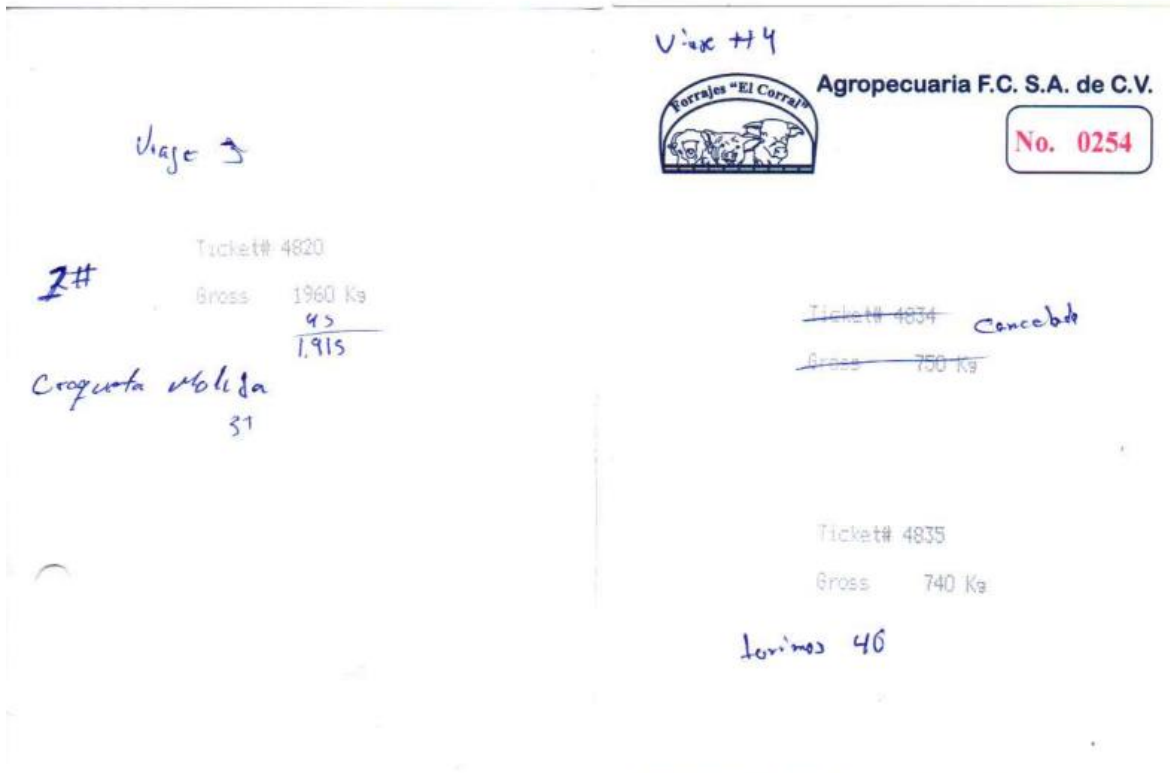 Viaje 3
Ticket# 4820
2#
Gross 1960 Kg
45
1,915
Croqueta Molida
31
Viaje #4
Forrajes "El Corral"
Agropecuaria F.C. S.A. de C.V.
No. 0254
Ticket# 4834 Cancelado
Gross 750 Kg
Ticket# 4835
Gross 740 Kg
46